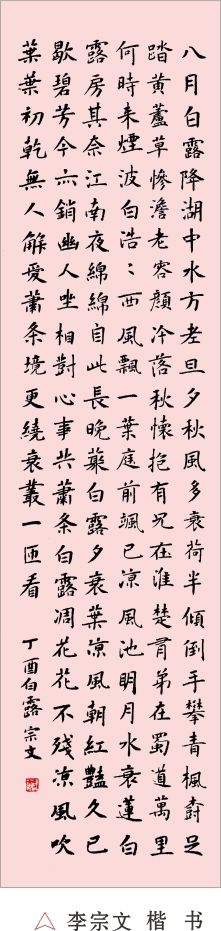 八月白露降湖中水方老旦夕秋風多衰荷半傾倒手攀青楓樹足
踏黄蘆草慘澹老容顏冷落秋懷抱有兄在淮楚有弟在蜀道萬里
何時来煙波白浩〻西風飄一葉庭前颯已凉風池明月水衰蓮白
露房其奈江南夜綿綿自此長晚蕖白露夕衰葉凉風朝紅豔久已
歇碧芳今亦銷幽人坐相對心事共蕭条白露凋花花不殘凉風吹
葉葉初乾無人解愛蕭条境更繞衰叢一匝看
丁酉白露宗文
△ 李宗文 楷 书